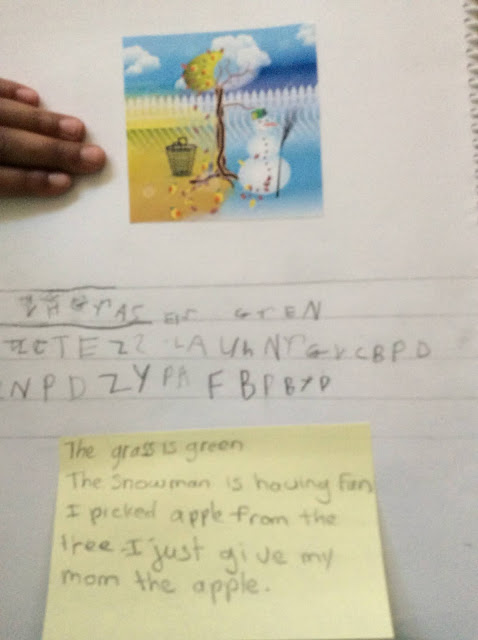 GrEN
TEZZ LAUhNYGYCBPD
NPD ZYPA FBPBYD
The grass is green
The snowman is having fun
I picked apple from the
tree. I just give my
mom the apple.